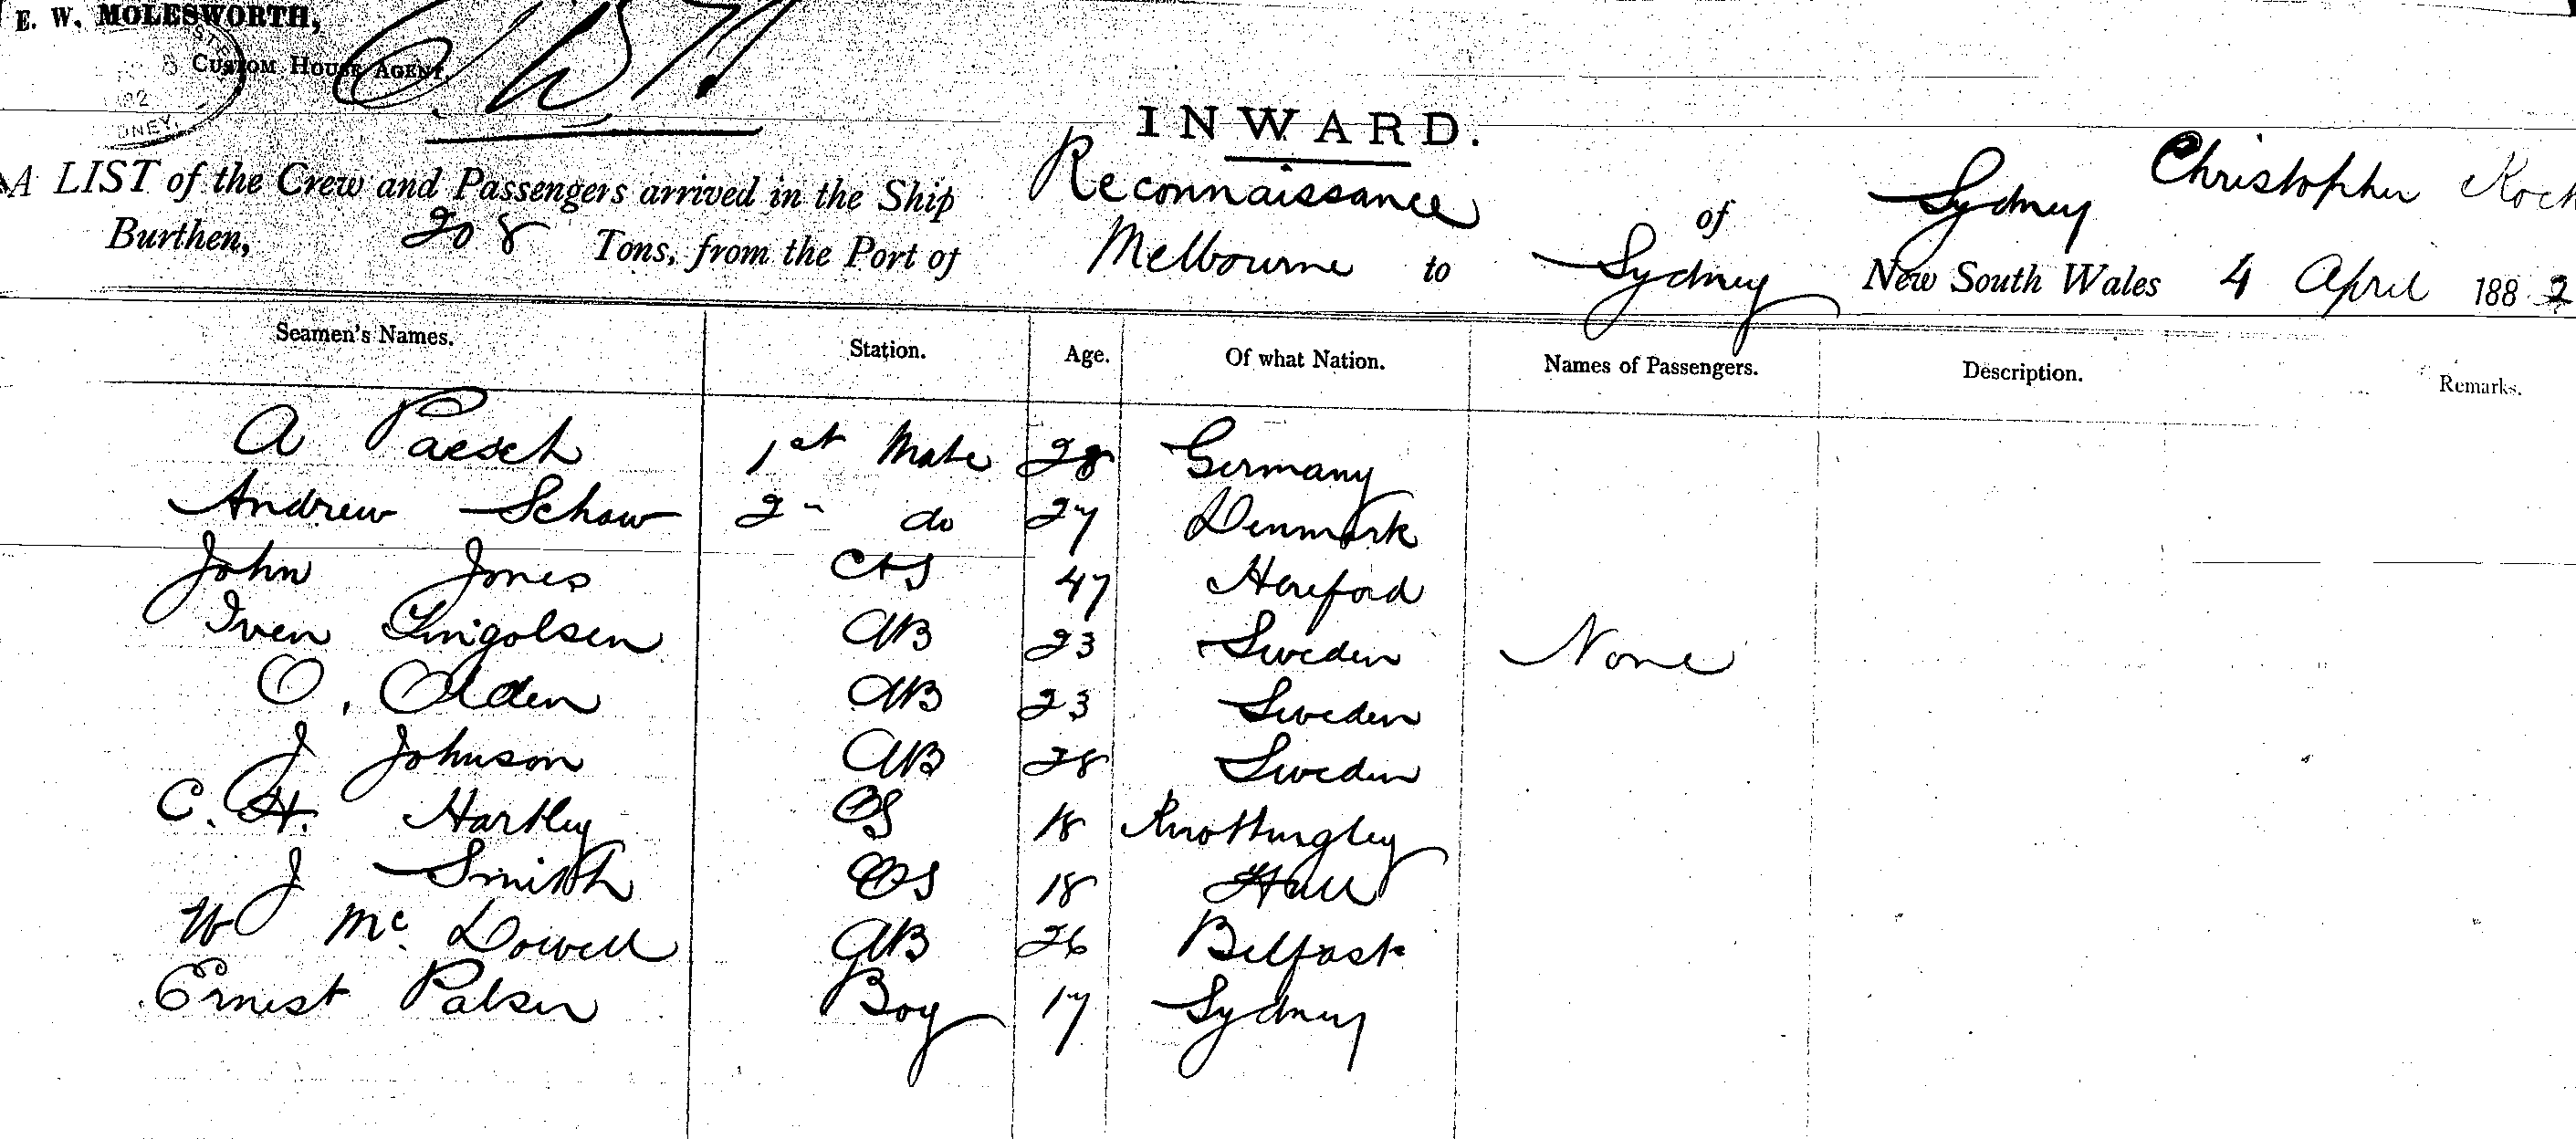 E. W. MOLESWORTH,
CUSTOM HOUSE AGENT,
DNEY.
INWARD.
A LIST of the Crew and Passengers arrived in the Ship Reconnaissance of Sydney Christopher Koch
Burthen, 208 Tons, from the Port of Melbourne to Sydney New South Wales 4 April 1882
Seamen's Names. Station. Age. Of what Nation. Names of Passengers. Description. Remarks.
A Paesch 1st Mate 28 Germany
Andrew Schow 2n do 27 Denmark
John Jones C+S 47 Hereford
Iven AB 23 Sweden None
O. Olden AB 23 Sweden
J Johnson AB 28 Sweden
C. H. Hartley OS 18 Knottingley
J Smith OS 18 Hull
W McDowell AB 26 Belfast
Ernest Palser Boy 17 Sydney